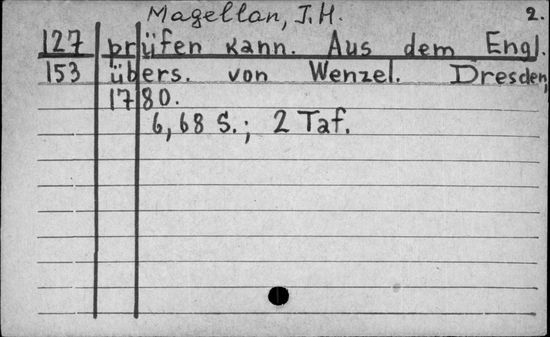 Magellan, J.H. 2.
127 prüfen kann. Aus dem Engl.
153 übers. von Wenzel. Dresden,
1780.
6, 68 S.; 2 Taf.